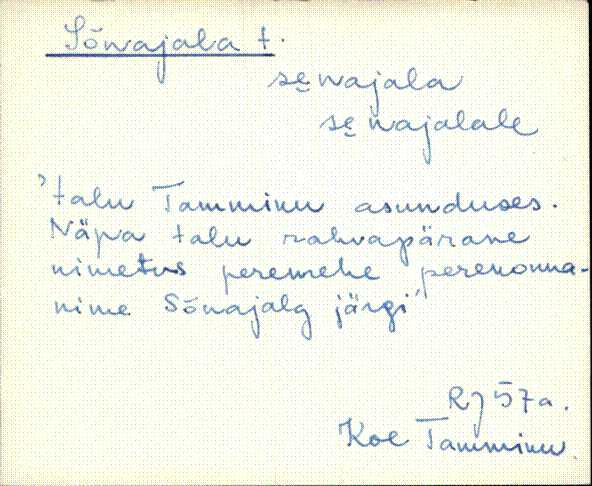 Sõnajala t.
se̮najala
se̮najalale
"talu Tammiku asunduses.
Näpa talu rahvapärane
nimetus peremehe perekonna-
nime Sõnajalg järgi"
Rj 57a.
Koe Tammiku.